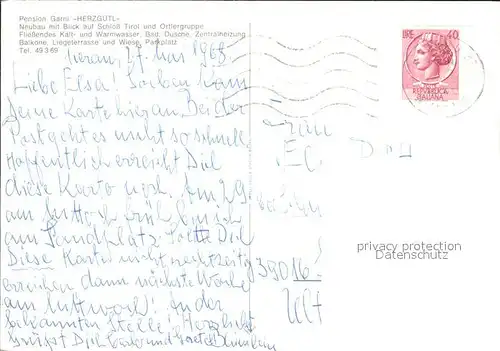 Pension Garni »HERZGUTL«
Neubau mit Blick auf Schloß Tirol und Ortlergruppe
Fließendes Kalt- und Warmwasser, Bad, Dusche, Zentralheizung
Balkone, Liegeterrasse und Wiese, Parkplatz
Tel. 49 3 69
Meran, 27. Mai 1968.
Liebe Elsa! Soeben kam
Deine Karte hier an. Bei der
Post geht es nicht so schnell.
Hoffentlich erreicht Dich
diese Karte noch. Am 29.
am Mittwoch früh bin ich
am Sandplatz. Sollte Dich
Diese Karte nicht rechtzeitig
erreichen dann nächste Woche
am Mittwoch! An der
bekannten Stelle! Herzlichst
grüßt Dich
LIRE 40
REPVBBLICA
ITALIANA
Frau
39016
Ult
privacy protection
Datenschutz